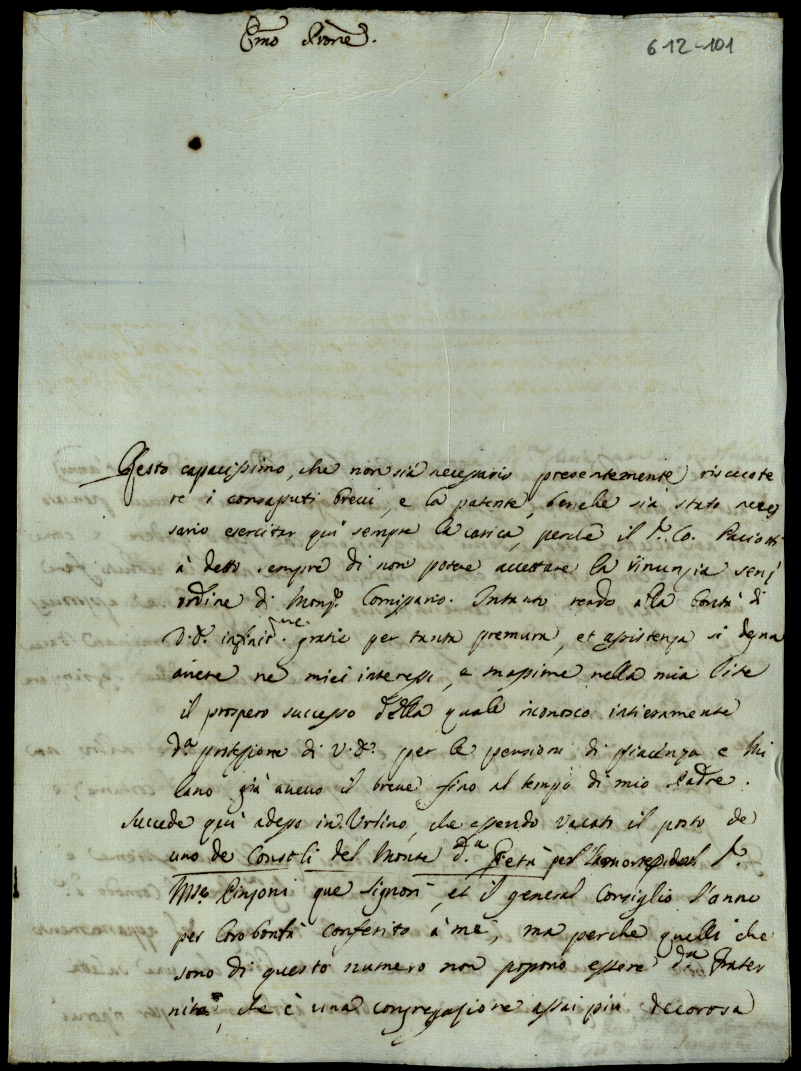 Emo Prone.
6-12-101
Resto capacissimo, che non sia necessario presentemente riscuote
re i consaputi brevi, e la patente, benche sia stato neces
sario esercitar quì sempre la carica, perche il Sr. Co. Paciotti
à detto sempre di non potere accettare la rinunzia senz
ordine di Monsr. Comissario. Intanto rendo alla bontà di
V. Sa. infinite. grazie per tanta premura, et assistenza si degna
avere ne miei interessi, e massime nella mia lite
il prospero successo della quale riconosco intieramente
da protezzione di V. Sa. per le pensioni di Piacenza e Mi
lano già avevo il breve fino al tempo di mio Padre.
Succede quì adesso in Urbino, che essendo vacato il posto de
uno de Consoli del Monte da. Pietà per la morte del Sr.
Pinzoni que Signori, et il general Consiglio l'anno
per loro bontà conferito à me, ma perche quelli che
sono di questo numero non possono essere da. Frater
nità, che è una congregazione assai più decorosa